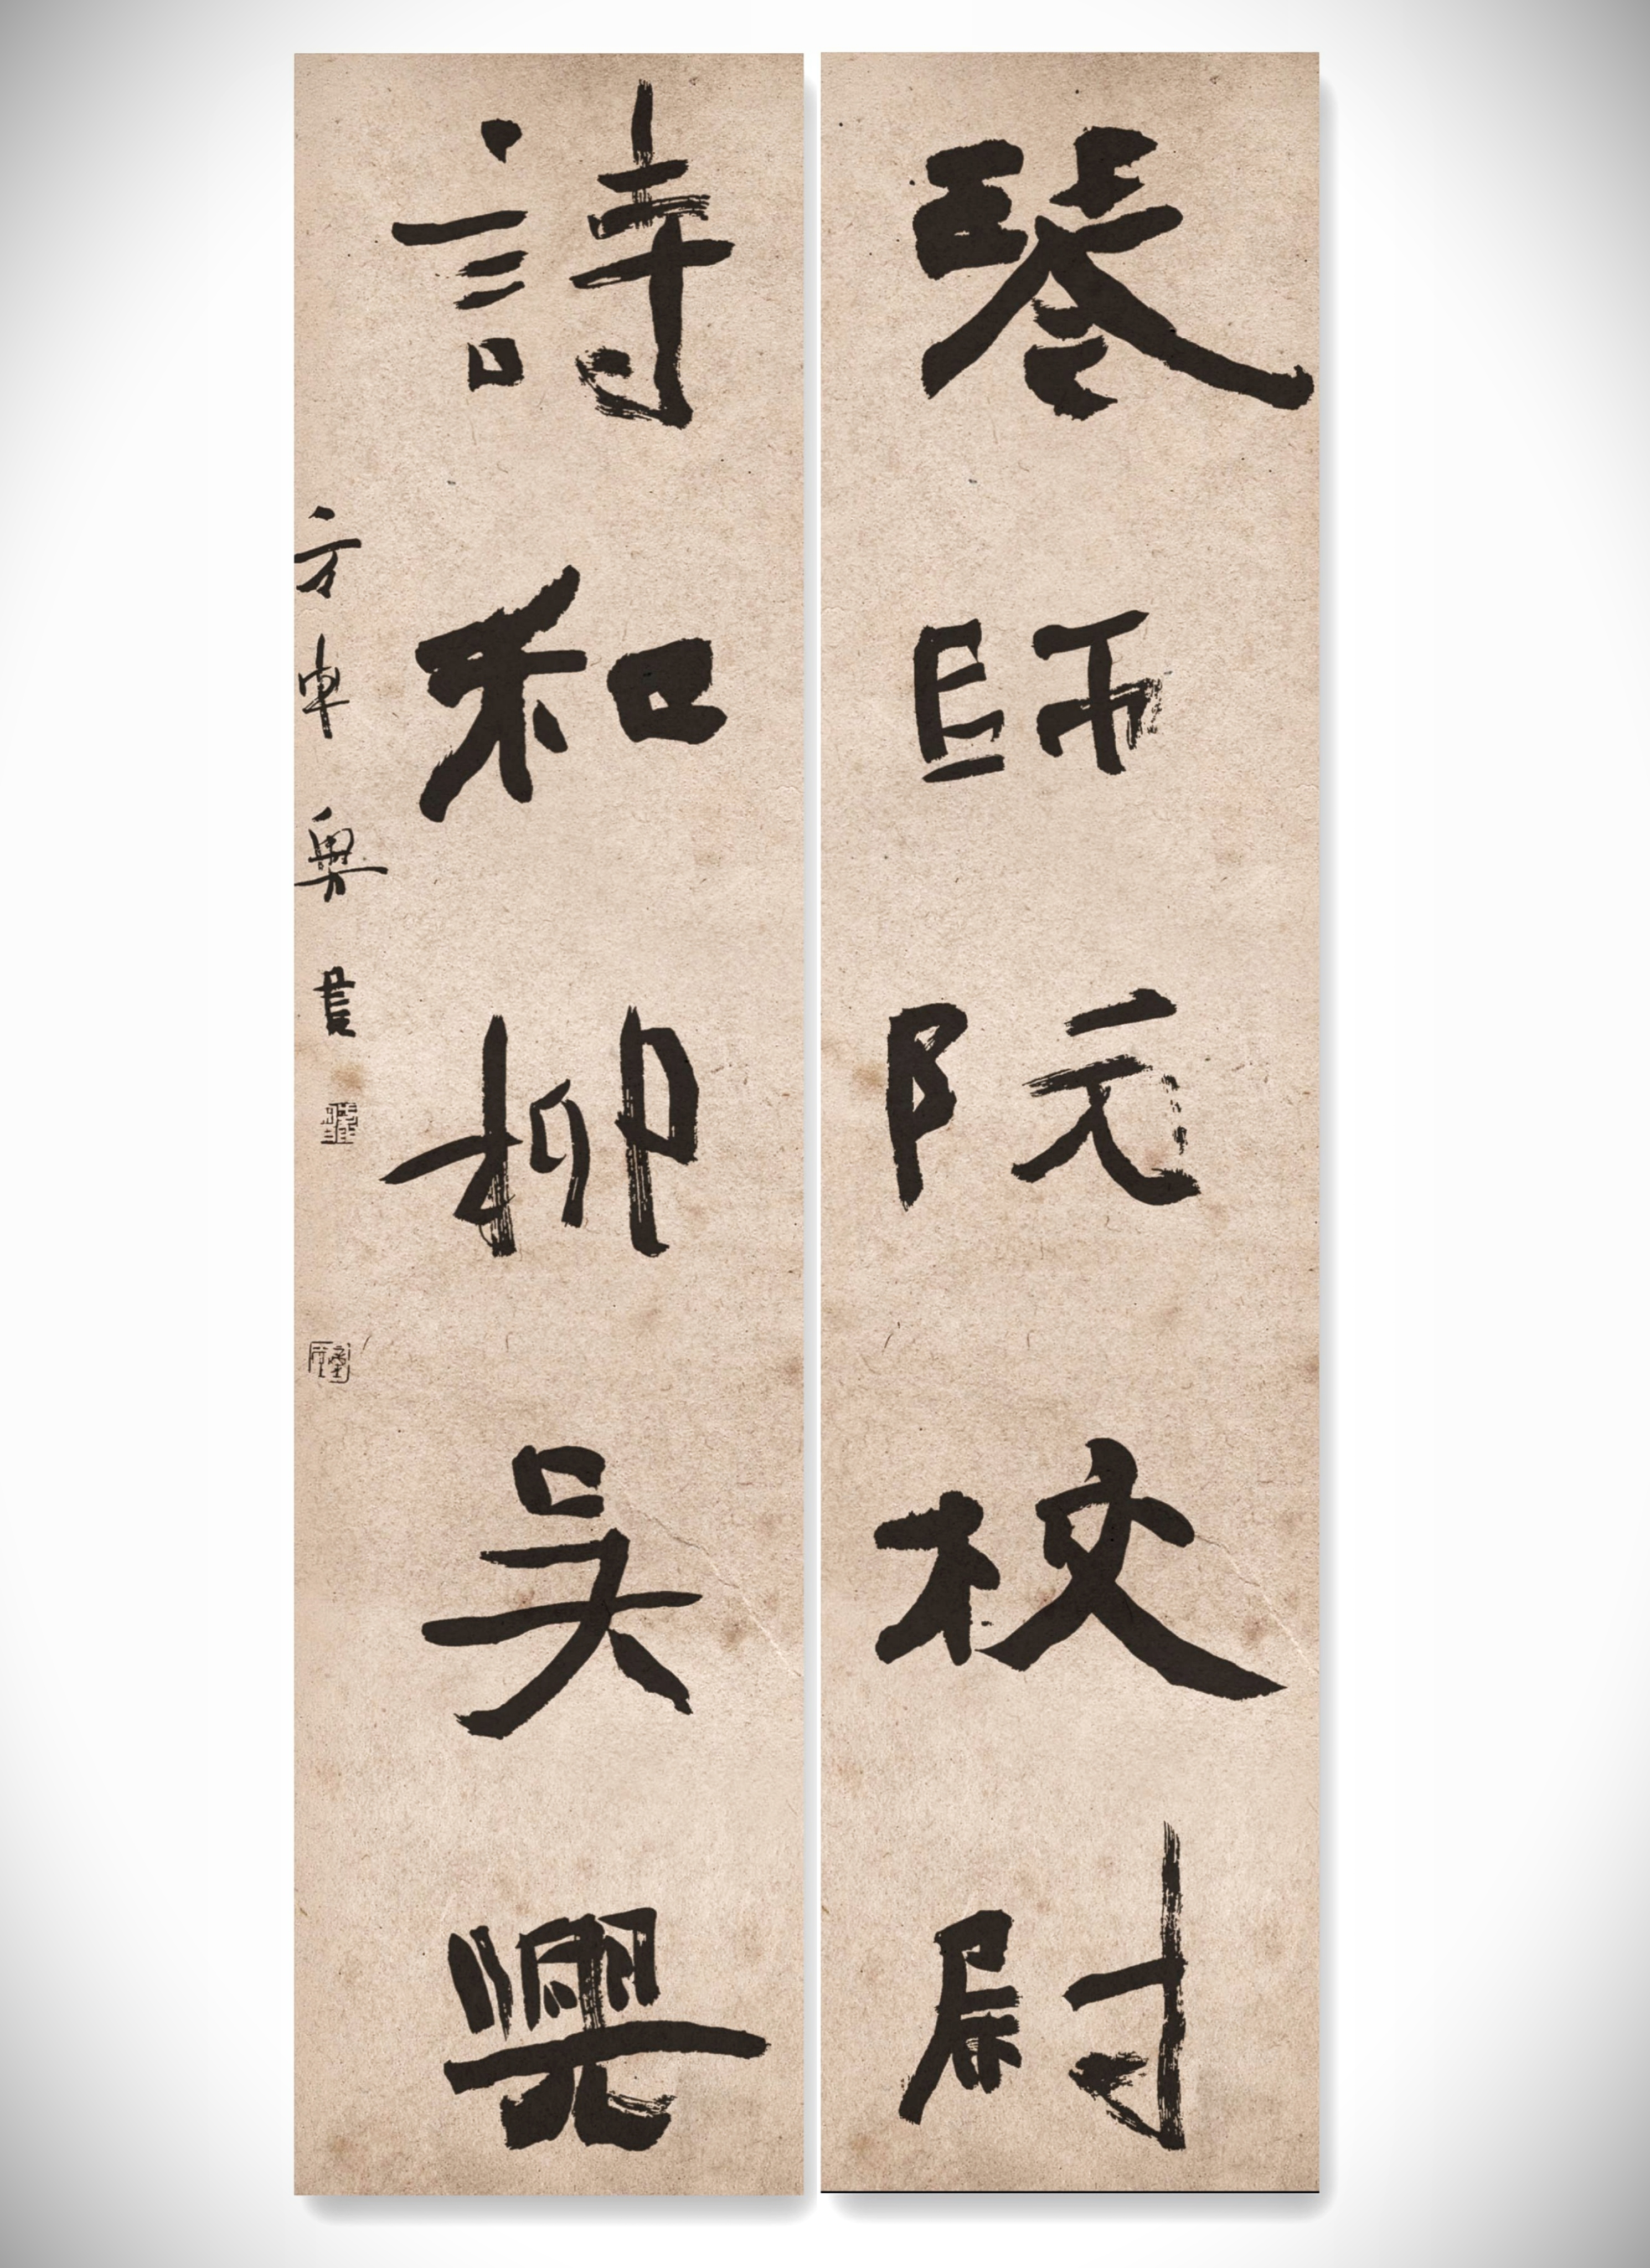 琴師阮校尉
詩和柳吳興
方車輿書